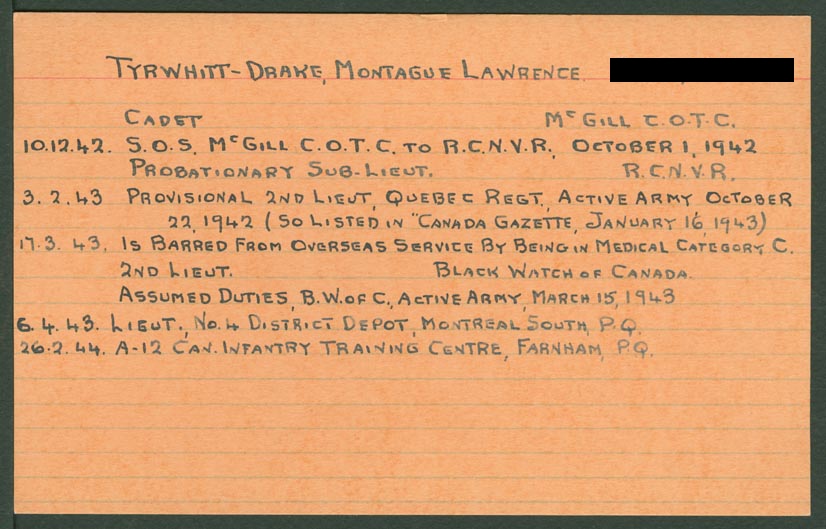 TYRWHITT-DRAKE, MONTAGUE LAWRENCE.
CADET McGILL C.O.T.C.
10.12.42. S.O.S. McGILL C.O.T.C. TO R.C.N.V.R., OCTOBER 1, 1942
PROBATIONARY SUB-LIEUT. R.C.N.V.R.
3.2.43 PROVISIONAL 2ND LIEUT, QUEBEC REGT., ACTIVE ARMY OCTOBER
22, 1942 (SO LISTED IN "CANADA GAZETTE, JANUARY 16, 1943)
17.3.43. IS BARRED FROM OVERSEAS SERVICE BY BEING IN MEDICAL CATEGORY C.
2ND LIEUT. BLACK WATCH OF CANADA.
ASSUMED DUTIES, B.W. OF C., ACTIVE ARMY, MARCH 15, 1943
6.4.43. LIEUT., NO. 4 DISTRICT DEPOT, MONTREAL SOUTH, P.Q.
26.2.44. A-12 CAN. INFANTRY TRAINING CENTRE, FARNHAM, P.Q.